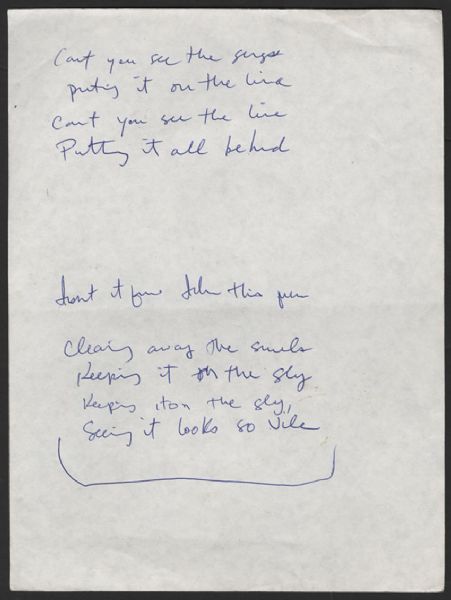 Cant you see the
puting it on the line
Cant you see the line
Putting it all behind
it this
Clearing away the
Keeping it on the sly
Keeping it on the sly,
Seeing it looks so vile